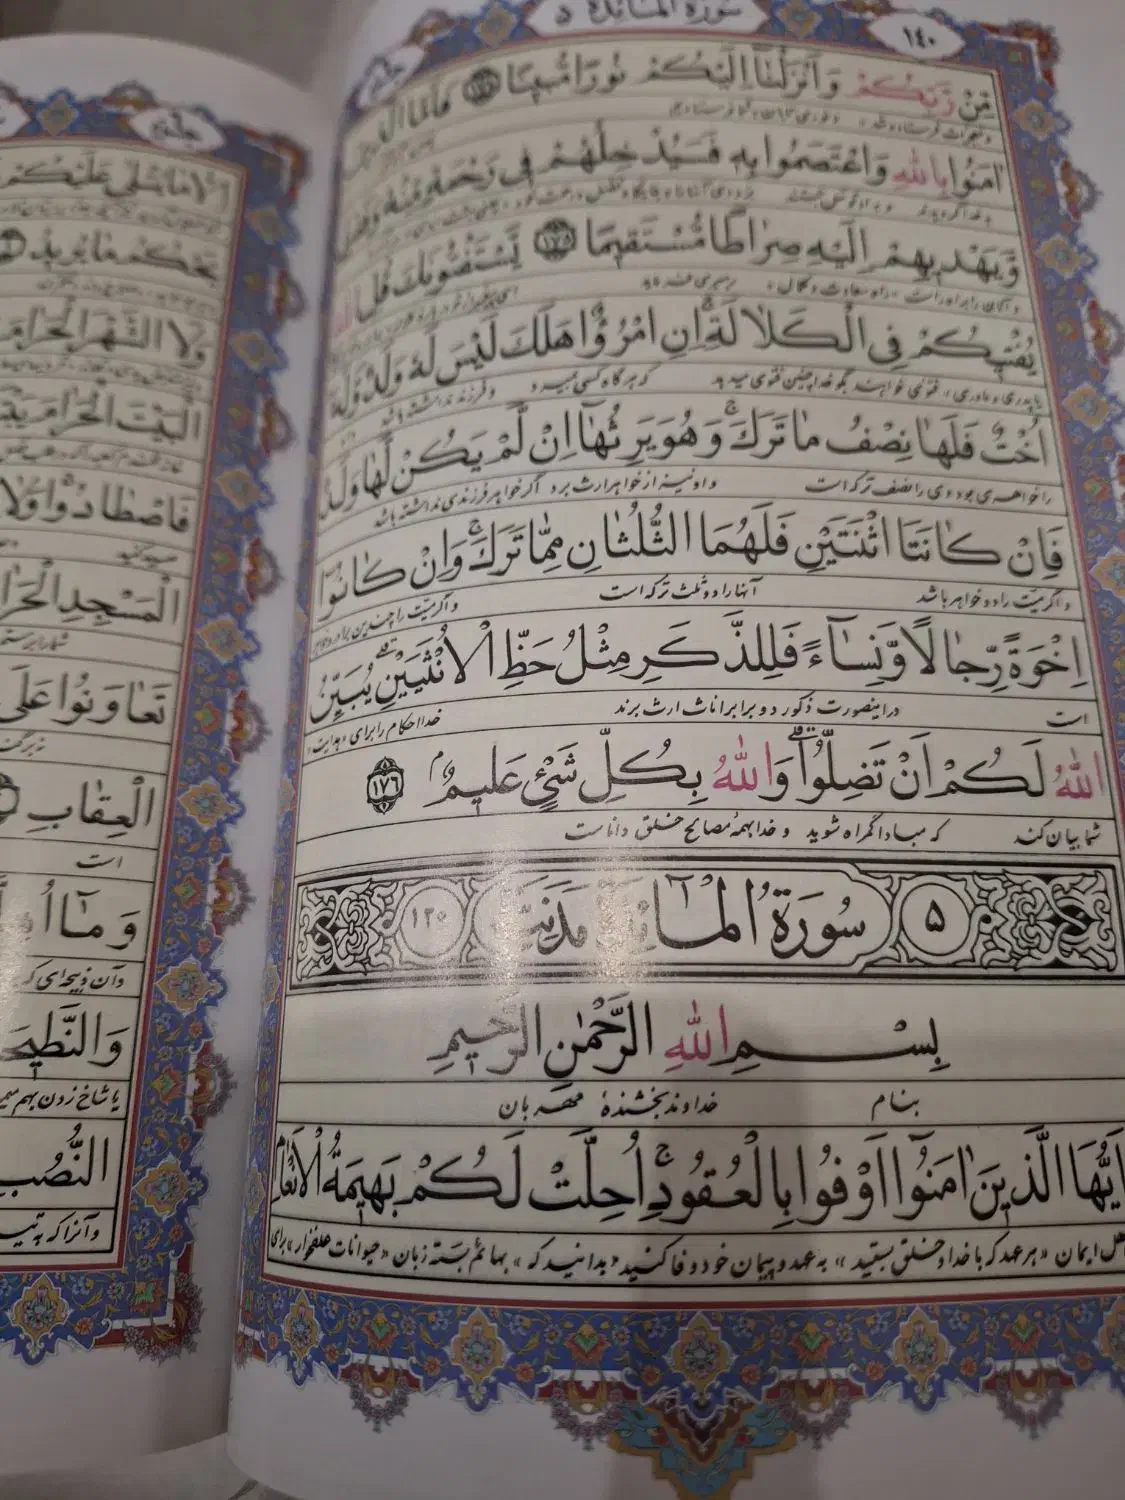 سورة المائدة ۵
۱۴۰
مِنْ رَبِّكُمْ وَاَنْزَلْنٰٓا اِلَيْكُمْ نُورًا مُبِينًا ﴿۱۷۴﴾ فَاَمَّا ال
اٰمَنُوا بِاللّٰهِ وَاعْتَصَمُوا بِهِ فَسَيُدْخِلُهُمْ فِي رَحْمَةٍ مِنْهُ وَفَضْلٍ
وَيَهْدِيهِمْ اِلَيْهِ صِرَاطًا مُسْتَقِيمًا ﴿۱۷۵﴾ يَسْتَفْتُونَكَ قُلِ
يُفْتِيكُمْ فِي الْكَلَالَةِ اِنِ امْرُؤٌا هَلَكَ لَيْسَ لَهُ وَلَدٌ وَلَهُ
یا پدری و مادری » فتوی خواهند بگو خدا چنین فتوی میدهد که هر گاه کسی بمیرد و فرزند نداشته باشد
اُخْتٌ فَلَهَا نِصْفُ مَا تَرَكَ وَهُوَ يَرِثُهَآ اِنْ لَمْ يَكُنْ لَهَا وَلَدٌ
را خواهری بود وی را نصف ترکه است و او نیز از خواهر ارث برد اگر خواهر فرزندی نداشته باشد
فَاِنْ كَانَتَا اثْنَتَيْنِ فَلَهُمَا الثُّلُثَانِ مِمَّا تَرَكَ وَاِنْ كَانُوٓا
و اگر میت را دو خواهر باشد آنها را دو ثلث ترکه است و اگر میت را چندین برادر و خواهر
اِخْوَةً رِجَالًا وَنِسَآءً فَلِلذَّكَرِ مِثْلُ حَظِّ الْاُنْثَيَيْنِ يُبَيِّنُ
است در اینصورت ذکور دو برابر اناث ارث برند خدا احکام را برای «هدایت»
اللّٰهُ لَكُمْ اَنْ تَضِلُّوا وَاللّٰهُ بِكُلِّ شَيْءٍ عَلِيمٌ ﴿۱۷۶﴾
شما بیان کند که مبادا گمراه شوید و خدا بهمهٔ مصالح خلق دانا است
۵ سُورَةُ الْمَآئِدَةِ مَدَنِيَّة ۱۲۰
بِسْمِ اللّٰهِ الرَّحْمٰنِ الرَّحِيمِ
بنام خداوند بخشندهٔ مهربان
اَيُّهَا الَّذِينَ اٰمَنُوٓا اَوْفُوا بِالْعُقُودِ اُحِلَّتْ لَكُمْ بَهِيمَةُ الْاَنْعَامِ
اهل ایمان «هر عهد که با خدا و خلق بستید» به عهد و پیمان خود وفا کنید «و بدانید که» بهائم بسته زبان «حیوانات علفخوار» برای
اِلَّا مَا يُتْلٰى عَلَيْكُمْ
يَحْكُمُ مَا يُرِيدُ
وَلَا الشَّهْرَ الْحَرَامَ
الْبَيْتَ الْحَرَامَ
فَاصْطَادُوا وَلَا
صید کنید
الْمَسْجِدِ الْحَرَا
تَعَاوَنُوا عَلَى
الْعِقَابِ
است
وَمَآ اُ
و آن ذبیحه‌ای که
وَالنَّطِيحَ
یا شاخ زدن بهم
النُّصُبِ
و آنرا که به